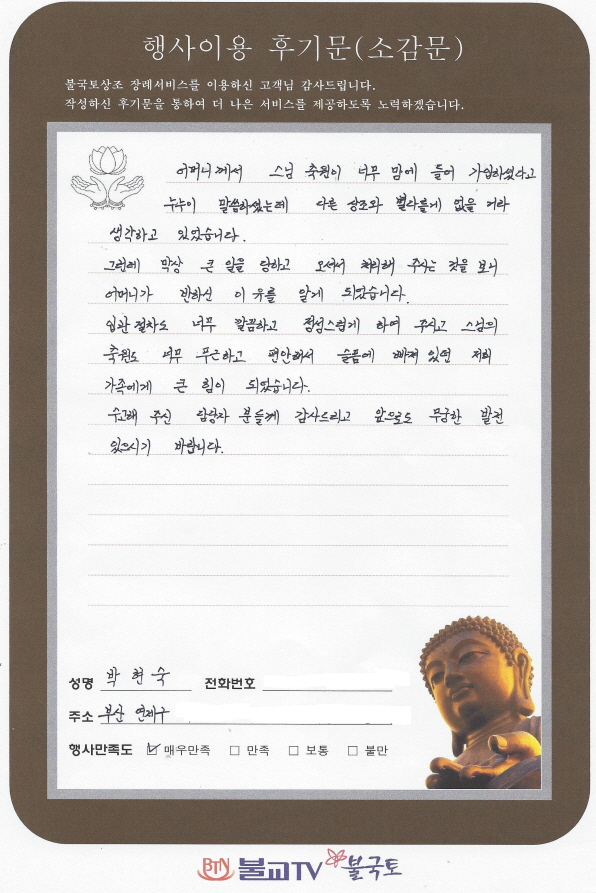 행사이용 후기문(소감문)
불국토상조 장례서비스를 이용하신 고객님 감사드립니다.
작성하신 후기문을 통하여 더 나은 서비스를 제공하도록 노력하겠습니다.
어머니께서 스님 축원이 너무 맘에 들어 가입하셨다고
누누이 말씀하셨는데 다른 상조와 별다를게 없을 거라
생각하고 있었습니다.
그런데 막상 큰 일을 당하고 오셔서 처리해 주시는 것을 보니
어머니가 반하신 이유를 알게 되었습니다.
입관 절차도 너무 깔끔하고 정성스럽게 하여 주시고 스님의
축원도 너무 푸근하고 편안해서 슬픔에 빠져 있던 저희
가족에게 큰 힘이 되었습니다.
수고해 주신 담당자 분들께 감사드리고 앞으로도 무궁한 발전
있으시기 바랍니다.
성명 박현숙 전화번호
주소 부산 연제구
행사만족도 ☑ 매우만족 □ 만족 □ 보통 □ 불만
BTN 불교TV 불국토